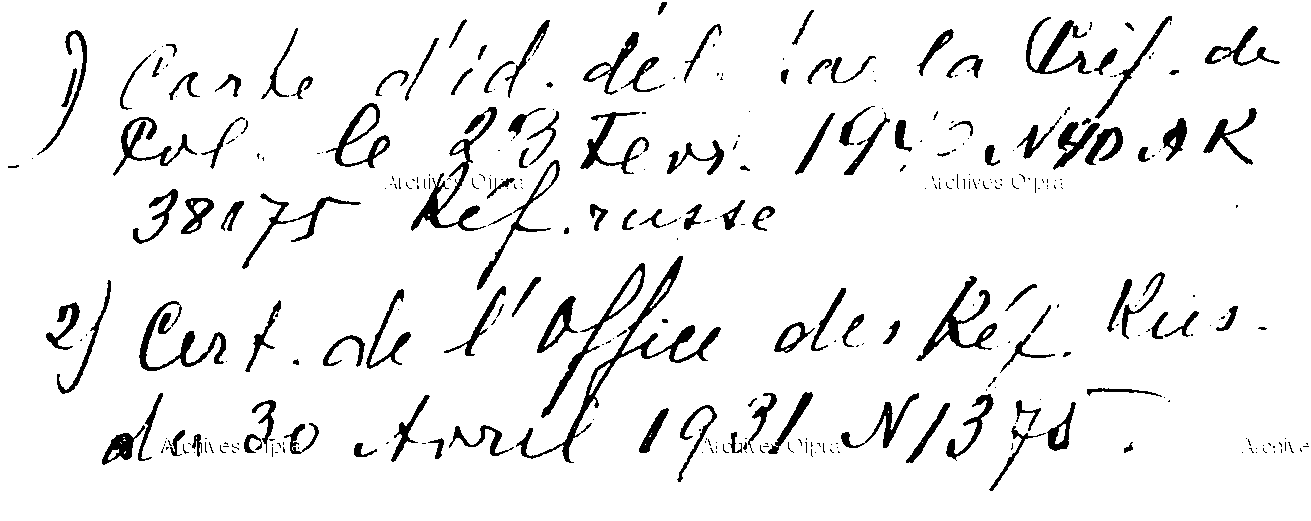 1) Carte d'id. dél. par la Préf. de
Pol. le 23 Fevr. 1940 N 40 AK
38175 Réf. russe
2) Cert. de l'Office des Réf. Rus.
du 30 Avril 1931 N 1375.
Archives Ofpra
Archives Ofpra
Archives Ofpra
Archives Ofpra